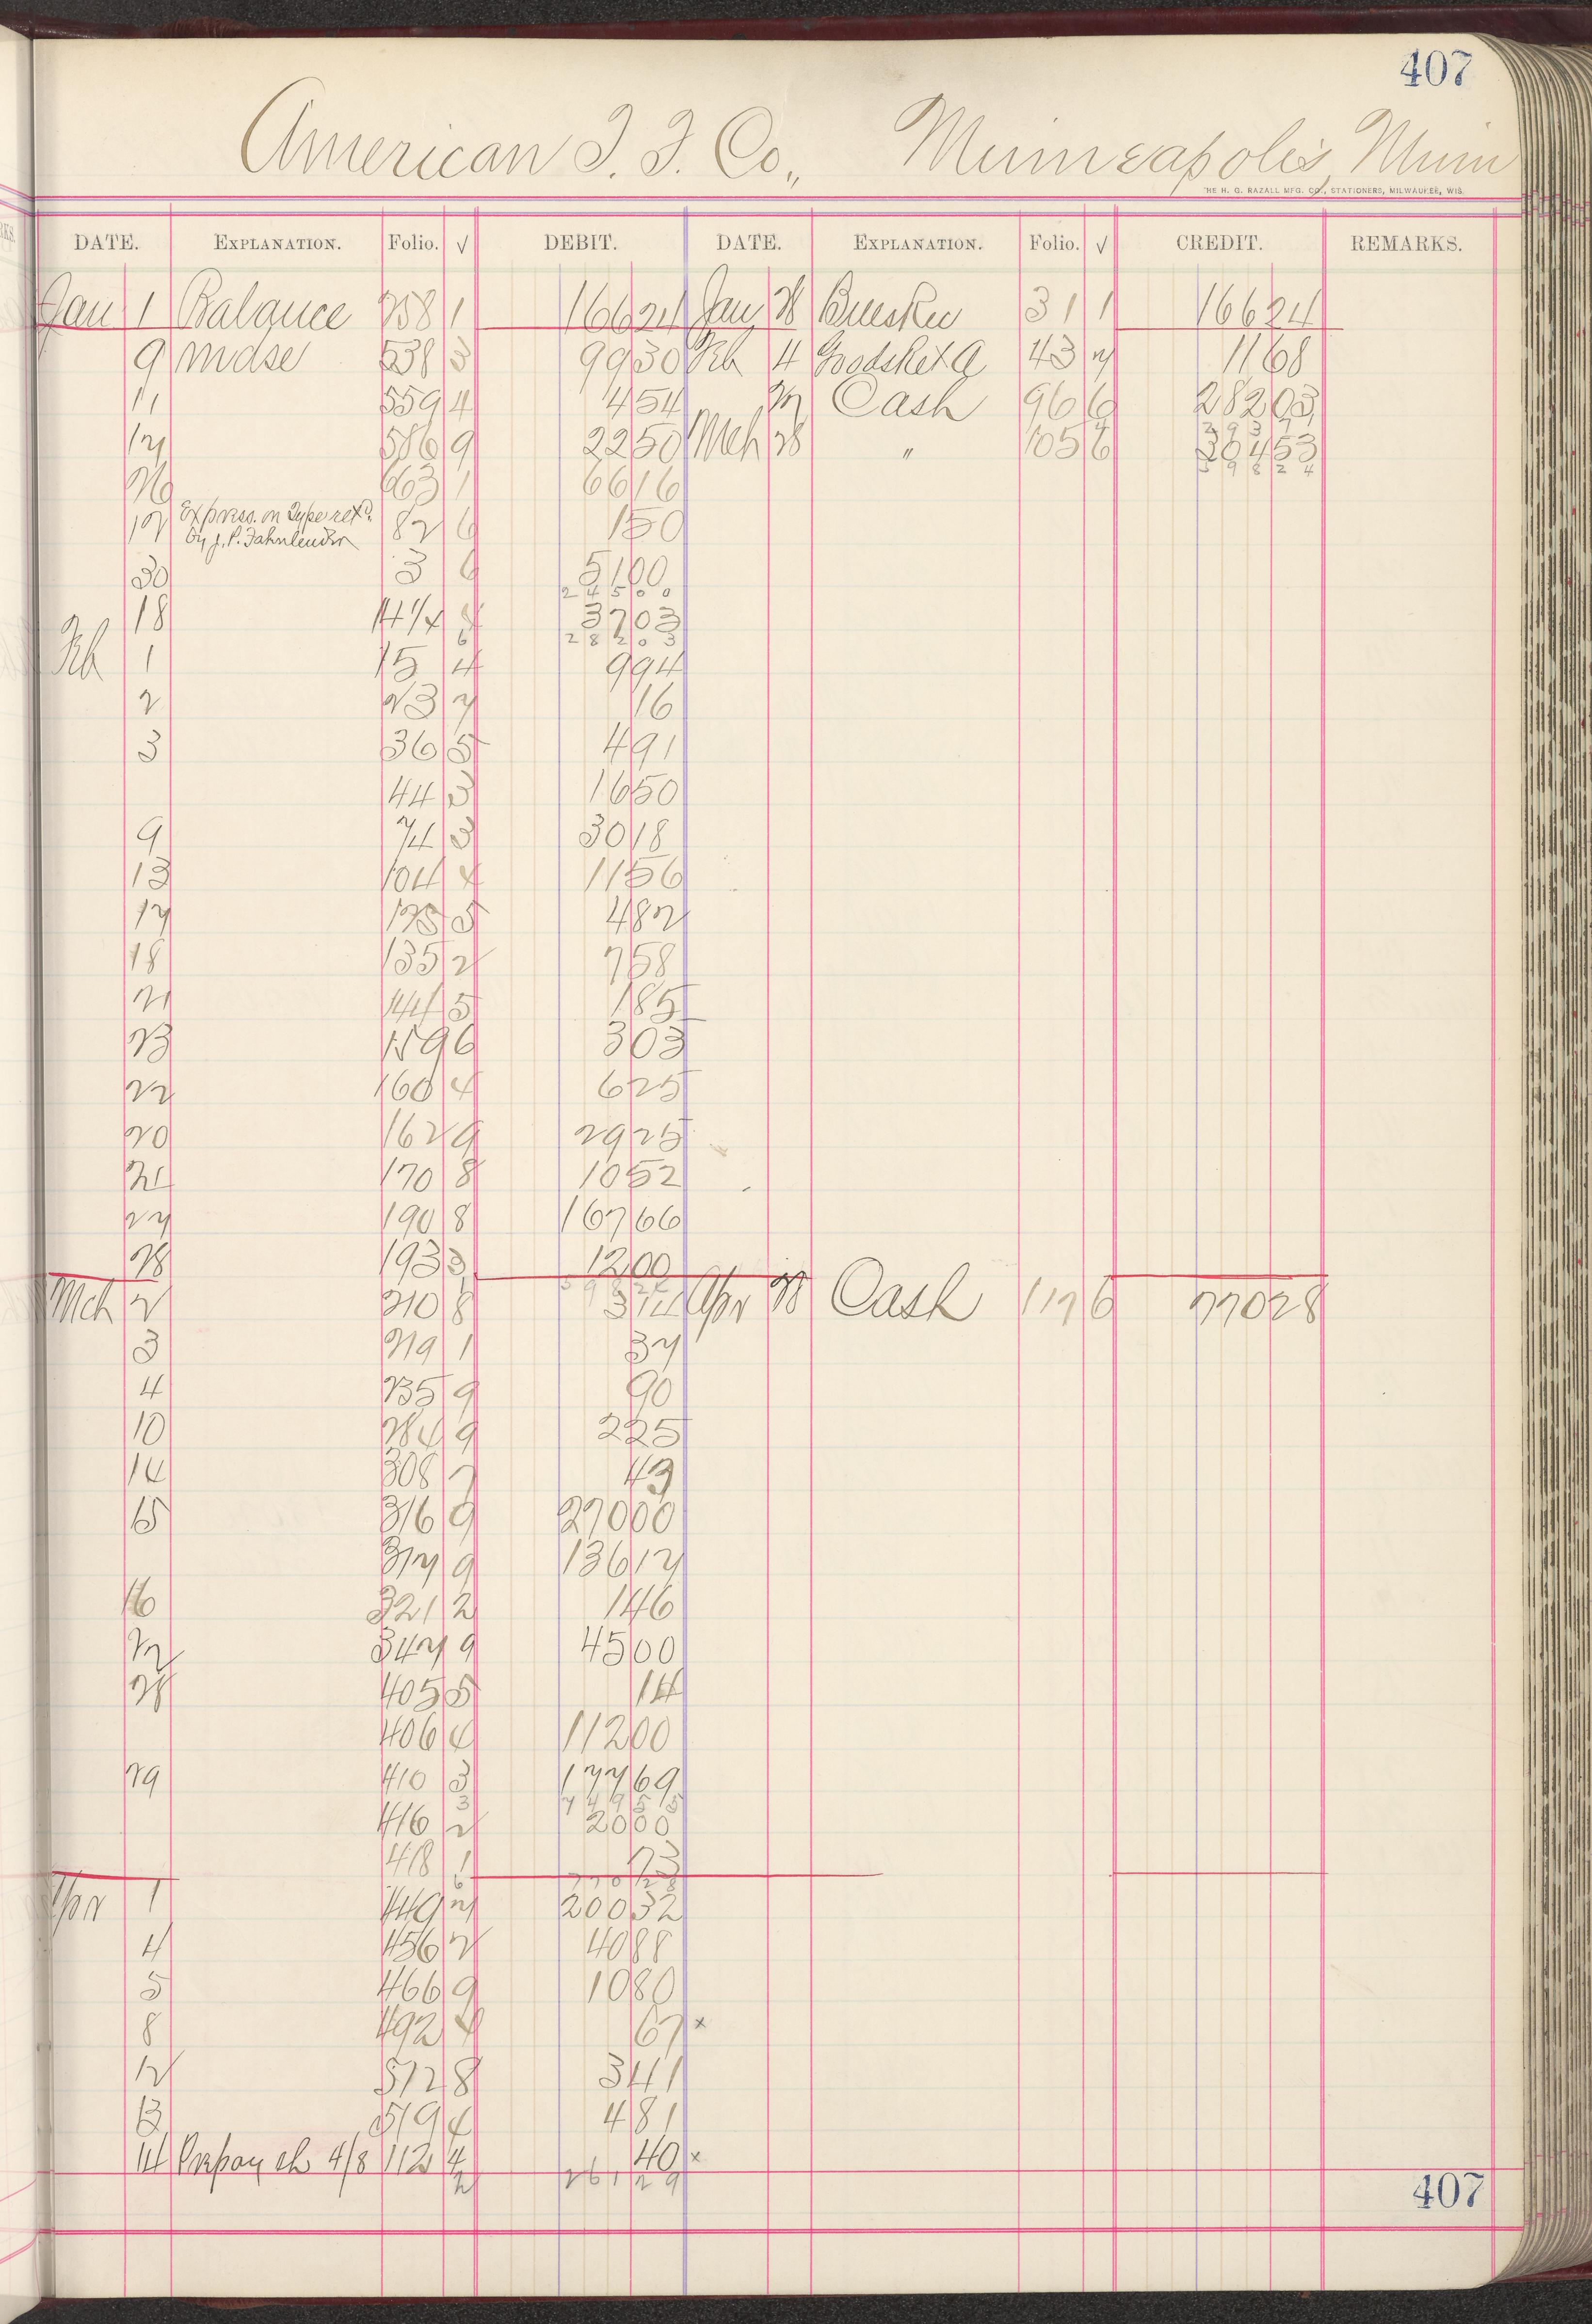 407
American T. F. Co., Minneapolis, Minn
THE H. G. RAZALL MFG. CO., STATIONERS, MILWAUKEE, WIS.
DATE. EXPLANATION. Folio. √ DEBIT. DATE. EXPLANATION. Folio. √ CREDIT. REMARKS.
Jan 1 Balance 758 1 16624 Jan 28 31 1 16624
9 Mdse 538 3 9930 Feb 4 Goods Ret d 43 7 1168
11 559 4 454 27 Cash 96 6 28203
17 586 9 2250 Mch 28 " 105 6 30453
29371
59824
26 663 1 6616
17 Express. on Type ret'd. 82 6 150
by J. P. Fahnlender
30 3 6 5100
24500
18 14 1/4 3703
6 28203
Feb 1 15 4 994
2 23 7 16
3 36 5 491
44 3 1650
9 74 3 3018
13 104 4 1156
17 125 5 482
18 135 2 758
21 144 5 185
23 159 6 303
22 160 4 625
20 162 9 2925
21 170 8 1052
27 190 8 16766
28 193 3 1200
59824
Mch 2 210 8 314 Apr 28 Cash 117 6 77028
3 219 1 37
4 235 9 90
10 284 9 225
14 308 7 43
15 316 9 27000
317 9 13617
16 321 2 146
22 347 9 4500
28 405 5 14
406 4 11200
29 410 3 17769
3 74955
416 2 2000
418 1 73
6 77028
Apr 1 449 7 20032
4 456 2 4088
5 466 9 1080
8 492 4 67 x
12 512 8 341
13 519 4 481
14 Prepay ch 4/8 112 4 40 x
2 26129
407